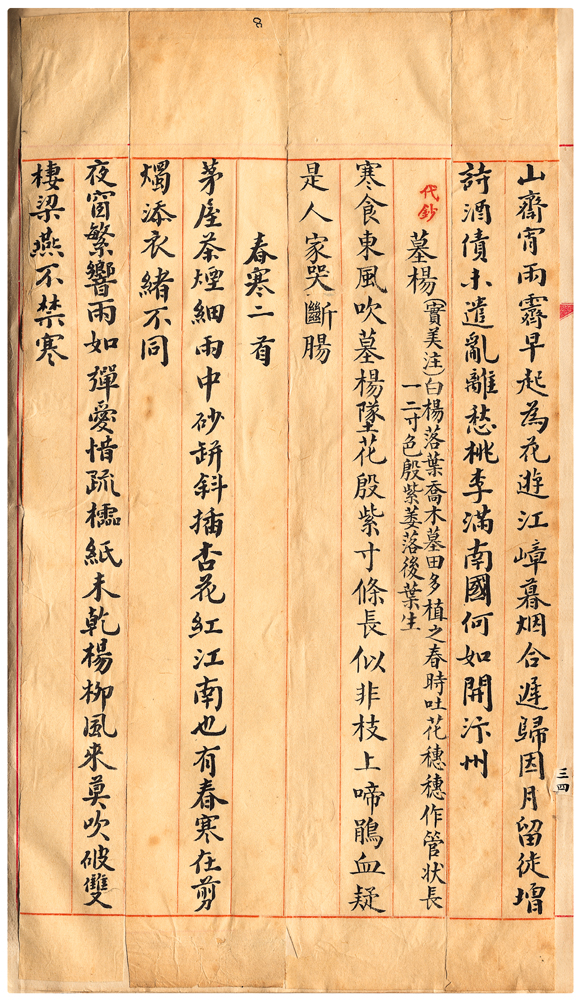 山齋宵雨霽早起為花遊江嶂暮烟合遲歸因月留徒增
詩酒債未遣亂離愁桃李滿南國何如開汴州
代鈔
墓楊(實美注)白楊落葉喬木墓田多植之春時吐花穗穗作管狀長
一二寸色殷紫萎落後葉生
寒食東風吹墓楊墜花殷紫寸條長似非枝上啼鵑血疑
是人家哭斷腸
春寒二首
茅屋茶煙細雨中砂缾斜插杏花紅江南也有春寒在剪
燭添衣緒不同
夜窗繁響雨如彈愛惜疏櫺紙未乾楊柳風來莫吹破雙
棲梁燕不禁寒
三四
8